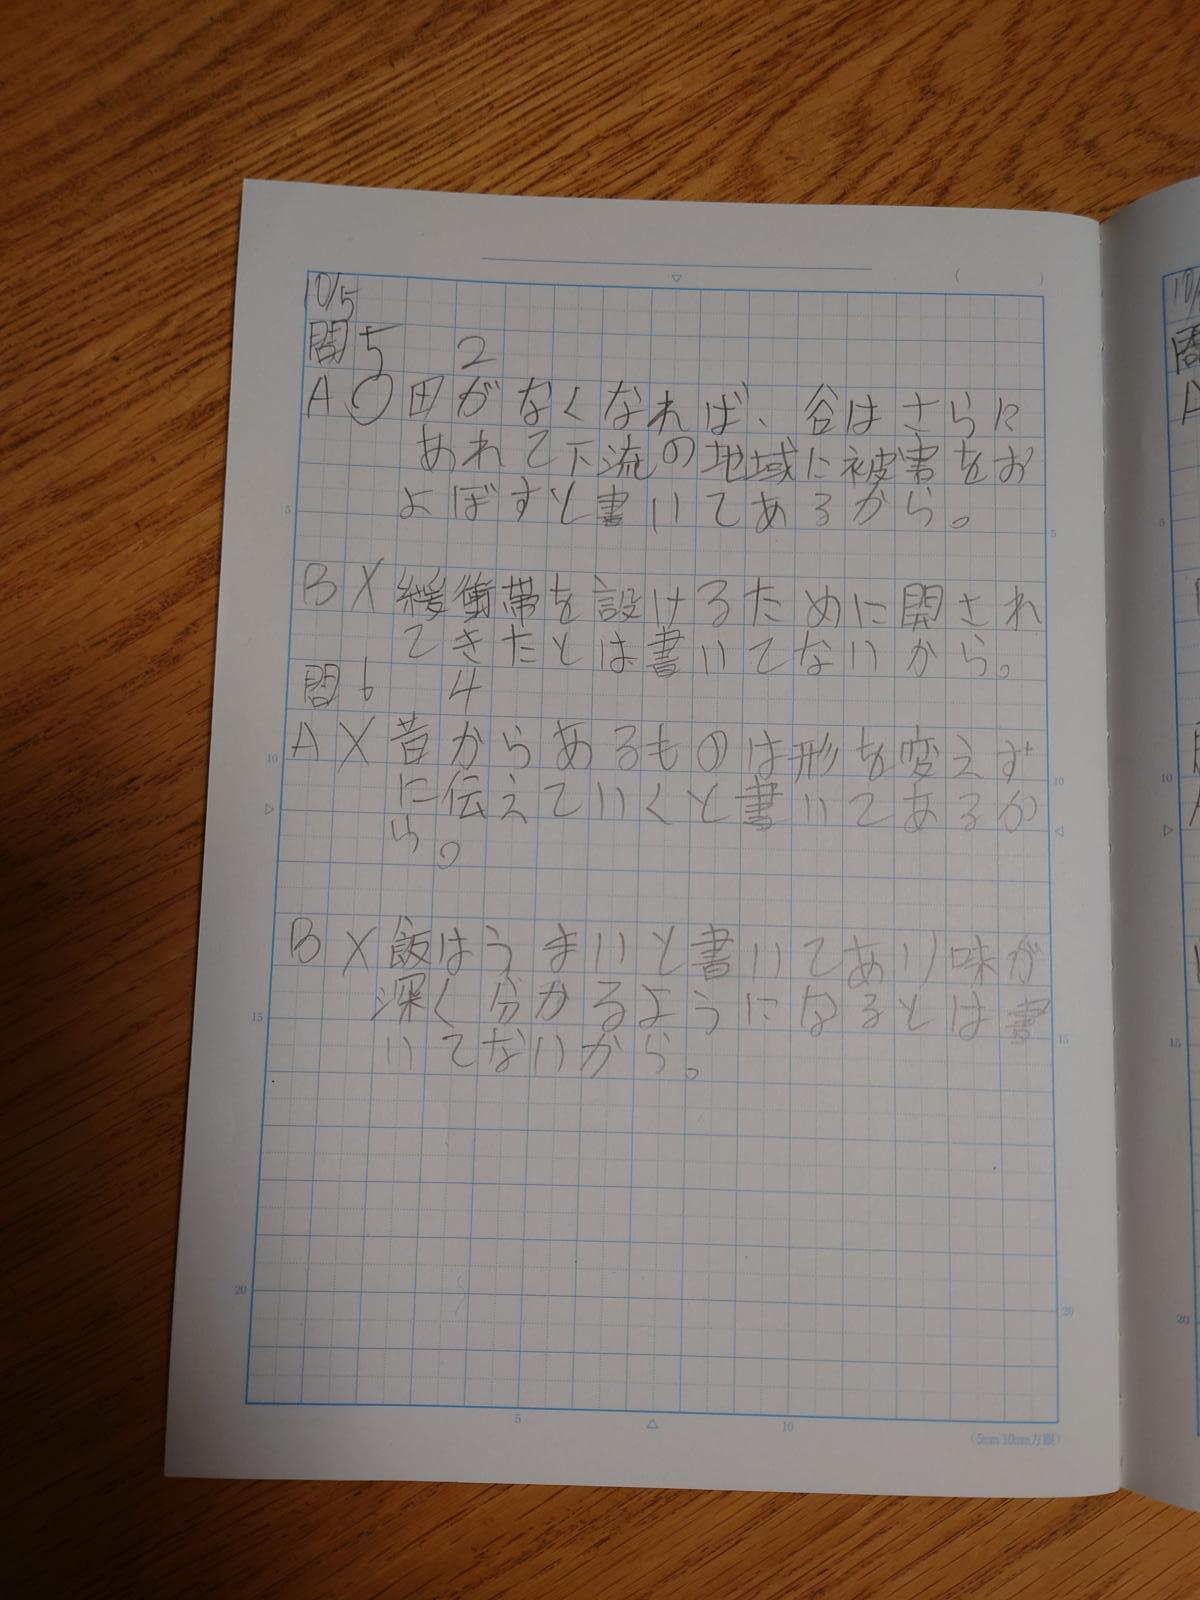 10/5
問5 2
A ○ 田がなくなれば、谷はさらに
あれて下流の地域に被害をお
よぼすと書いてあるから。
B X 緩衝帯を設けるために開され
てきたとは書いてないから。
問6 4
A X 昔からあるものは形を変えず
に伝えていくと書いてあるか
ら。
B X 飯はうまいと書いてあり味が
深く分かるようになるとは書
いてないから。
5
10
15
20
5
10
15
20
5
10
(5mm 10mm方眼)
5
10
15
20
問
A